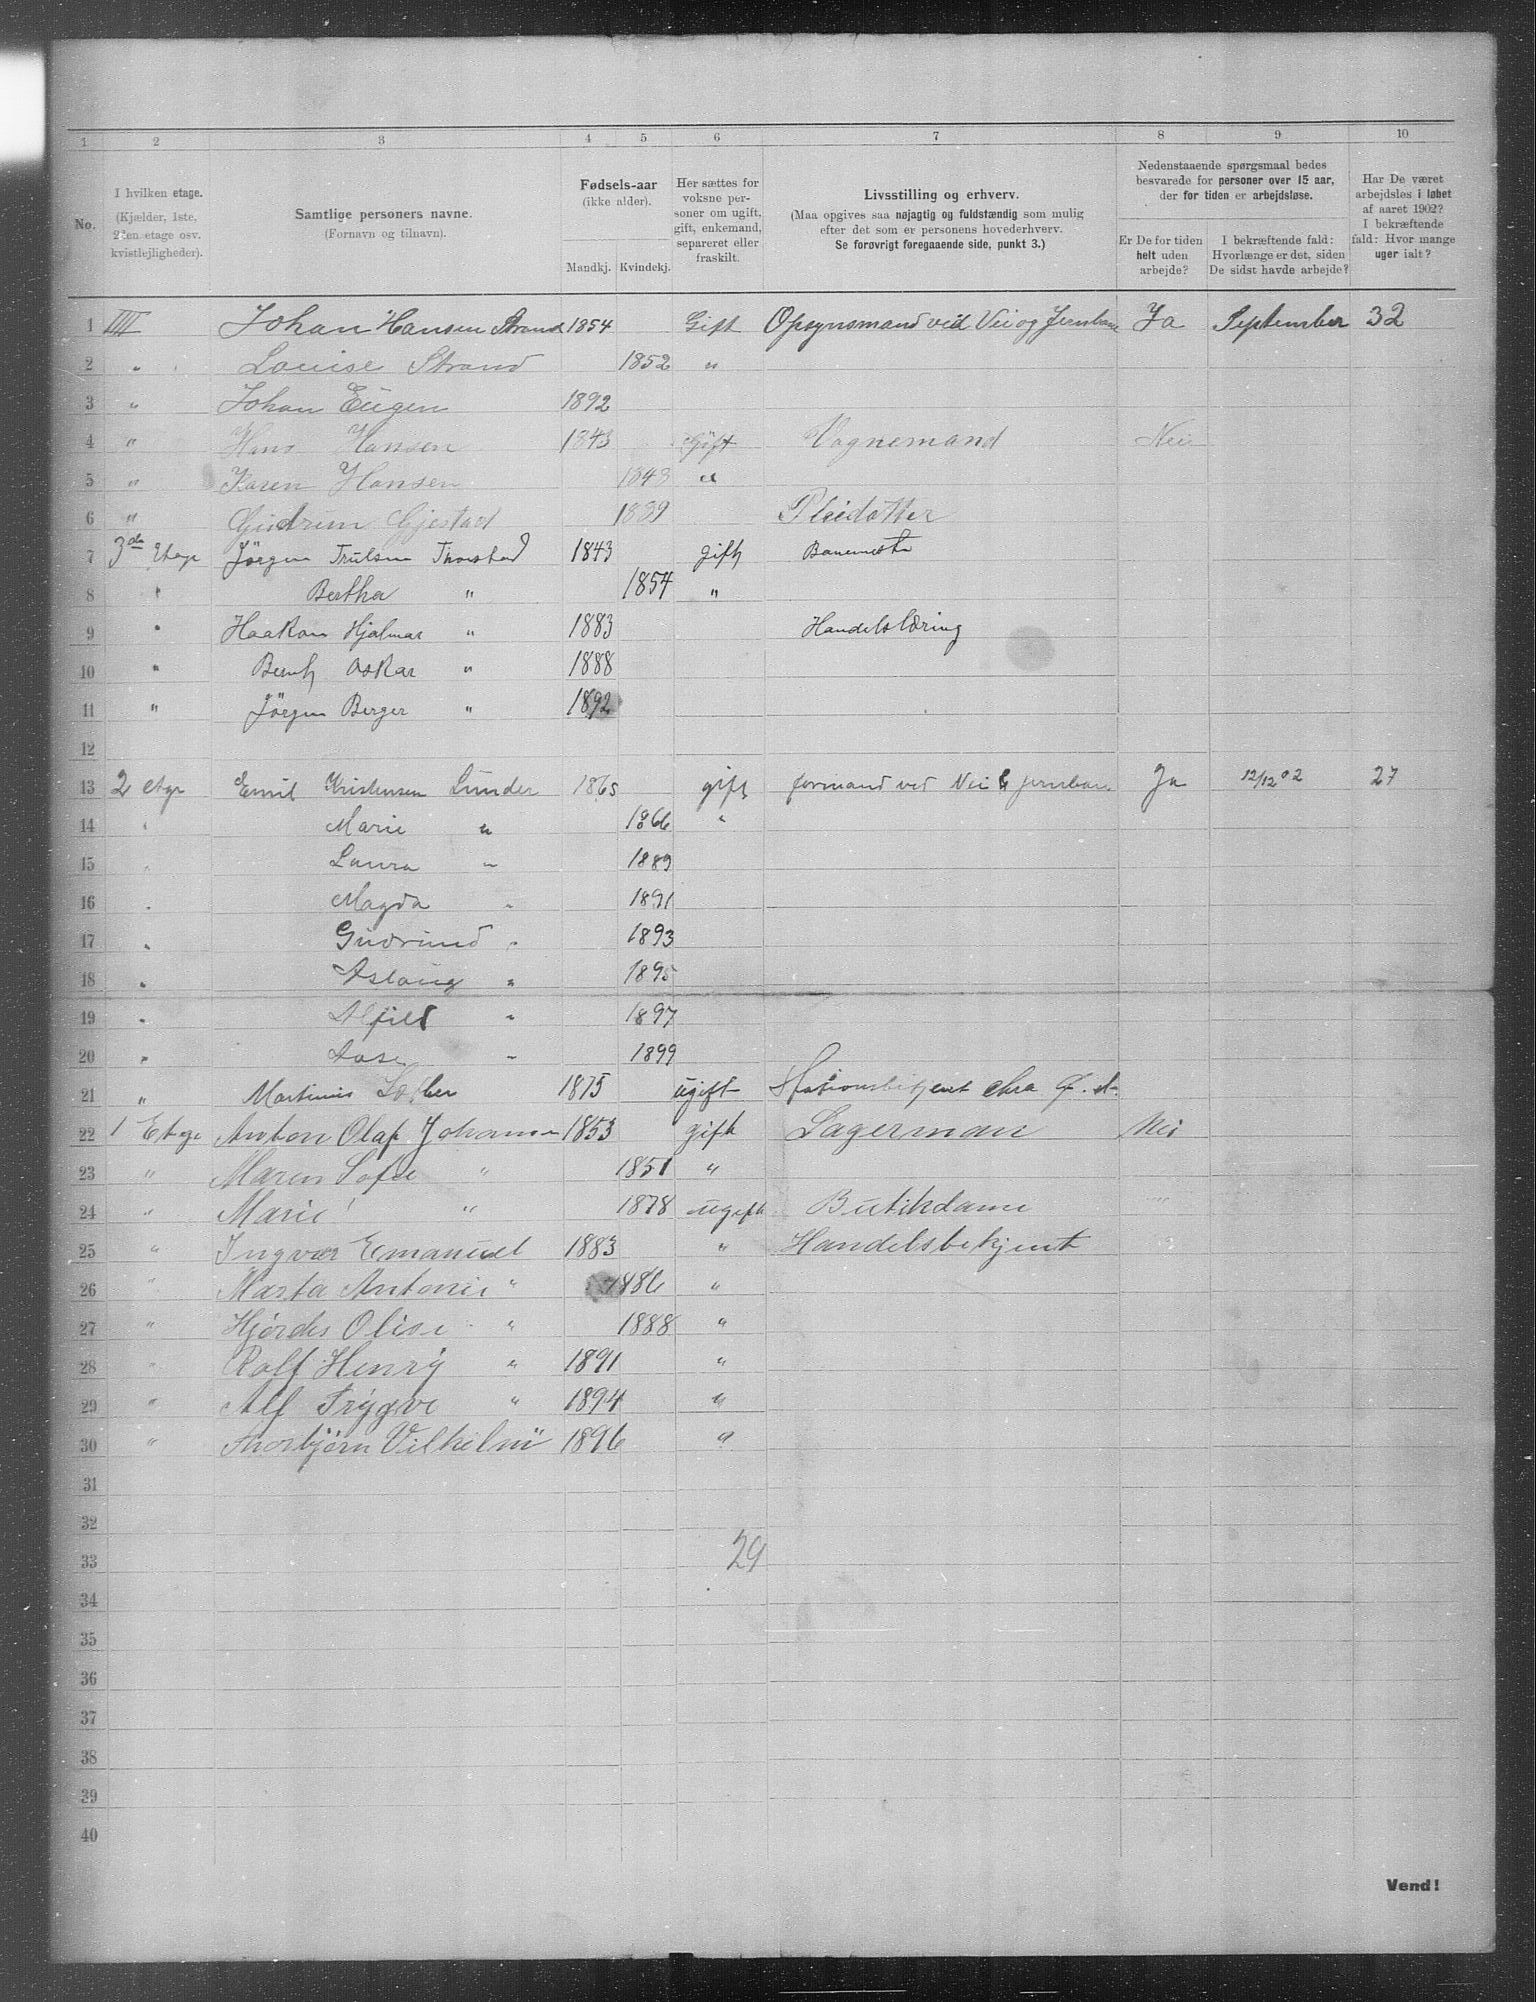 1 2 3 4 5 6 7 8 9 10
No.
I hvilken etage.
(Kjælder, 1ste, 2den etage osv. kvistlejligheder).
Samtlige personers navne.
(Fornavn og tilnavn).
Fødsels-aar
(ikke alder).
Mandkj. Kvindekj.
Her sættes for voksne personer om ugift, gift, enkemand, separeret eller fraskilt.
Livsstilling og erhverv.
(Maa opgives saa nøjagtig og fuldstændig som mulig efter det som er personens hovederhverv.
Se forøvrigt foregaaende side, punkt 3.)
Nedenstaaende spørgsmaal bedes besvarede for personer over 15 aar, der for tiden er arbejdsløse.
Er De for tiden helt uden arbejde?
I bekræftende fald: Hvorlænge er det, siden De sidst havde arbejde?
Har De været arbejdsløs i løbet af aaret 1902? I bekræftende fald: Hvor mange uger ialt?
1 IIII Johan Hansen Strand 1854 Gift Opsynsmand ved Vei og Jernbane Ja September 32
2 " Louise Strand 1852 "
3 " Johan Eugen 1892
4 " Hans Hansen 1843 Gift Vognemand Nei
5 " Karen Hansen 1843 "
6 " Gudrun Gjestad 1889 Pleiedatter
7 3de Etage Jörgen Trulsen Thorstad 1843 gift Banemester
8 " Bertha " 1854 "
9 " Haakon Hjalmar " 1883 Handelslæring
10 " Bernt Oskar " 1888
11 " Jörgen Berger " 1892
12
13 2 etge Emil Kristensen Lunder 1865 gift formand ved Vei & jernbane Ja 12/12 02 27
14 " Marie " 1866 "
15 " Laura " 1889
16 " Magda " 1891
17 " Gudrund " 1893
18 " Aslaug " 1895
19 " Alfild " 1897
20 " Aase " 1899
21 " Martinus 1875 ugift Stationsbetjent chra Ø. st.
22 1 Etage Anton Olaf Johansen 1853 gift Lagerman Nei
23 " Maren Sofie " 1851 "
24 " Marie " 1878 ugift Butikdame
25 " Ingvar Emanuel 1883 " Handelsbetjent
26 " Marta Antonie " 1886 "
27 " Hjördis Olise " 1888 "
28 " Rolf Henry " 1891 "
29 " Alf Trygve " 1894 "
30 " Thorbjörn Vilhelm 1896 "
31
32
33 29
34
35
36
37
38
39
40
Vend!